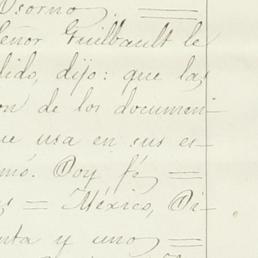 Osorno. =
señor Guilbault le
dido, dijo: que las
on de los documen-
ue usa en sus es-
mó. Doy fé =
s = México, Di-
nta y uno =